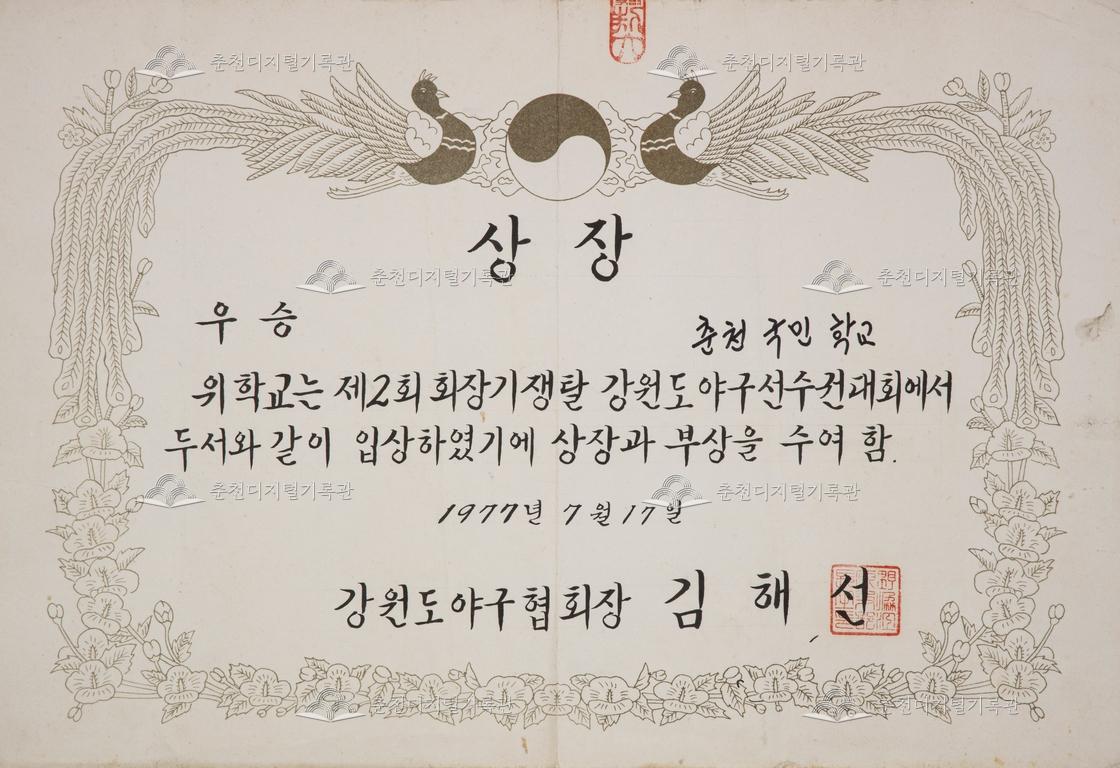 춘천디지털기록관 춘천디지털기록관
상 장
춘천디지털기록관 춘천디지털기록관
우 승
춘천 국민 학교
위 학교는 제2회 회장기쟁탈 강원도야구선수권대회에서
두서와 같이 입상하였기에 상장과 부상을 수여 함.
춘천디지털기록관 춘천디지털기록관
1977년 7월 17일
강원도야구협회장 김 해 선
춘천디지털기록관 춘천디지털기록관